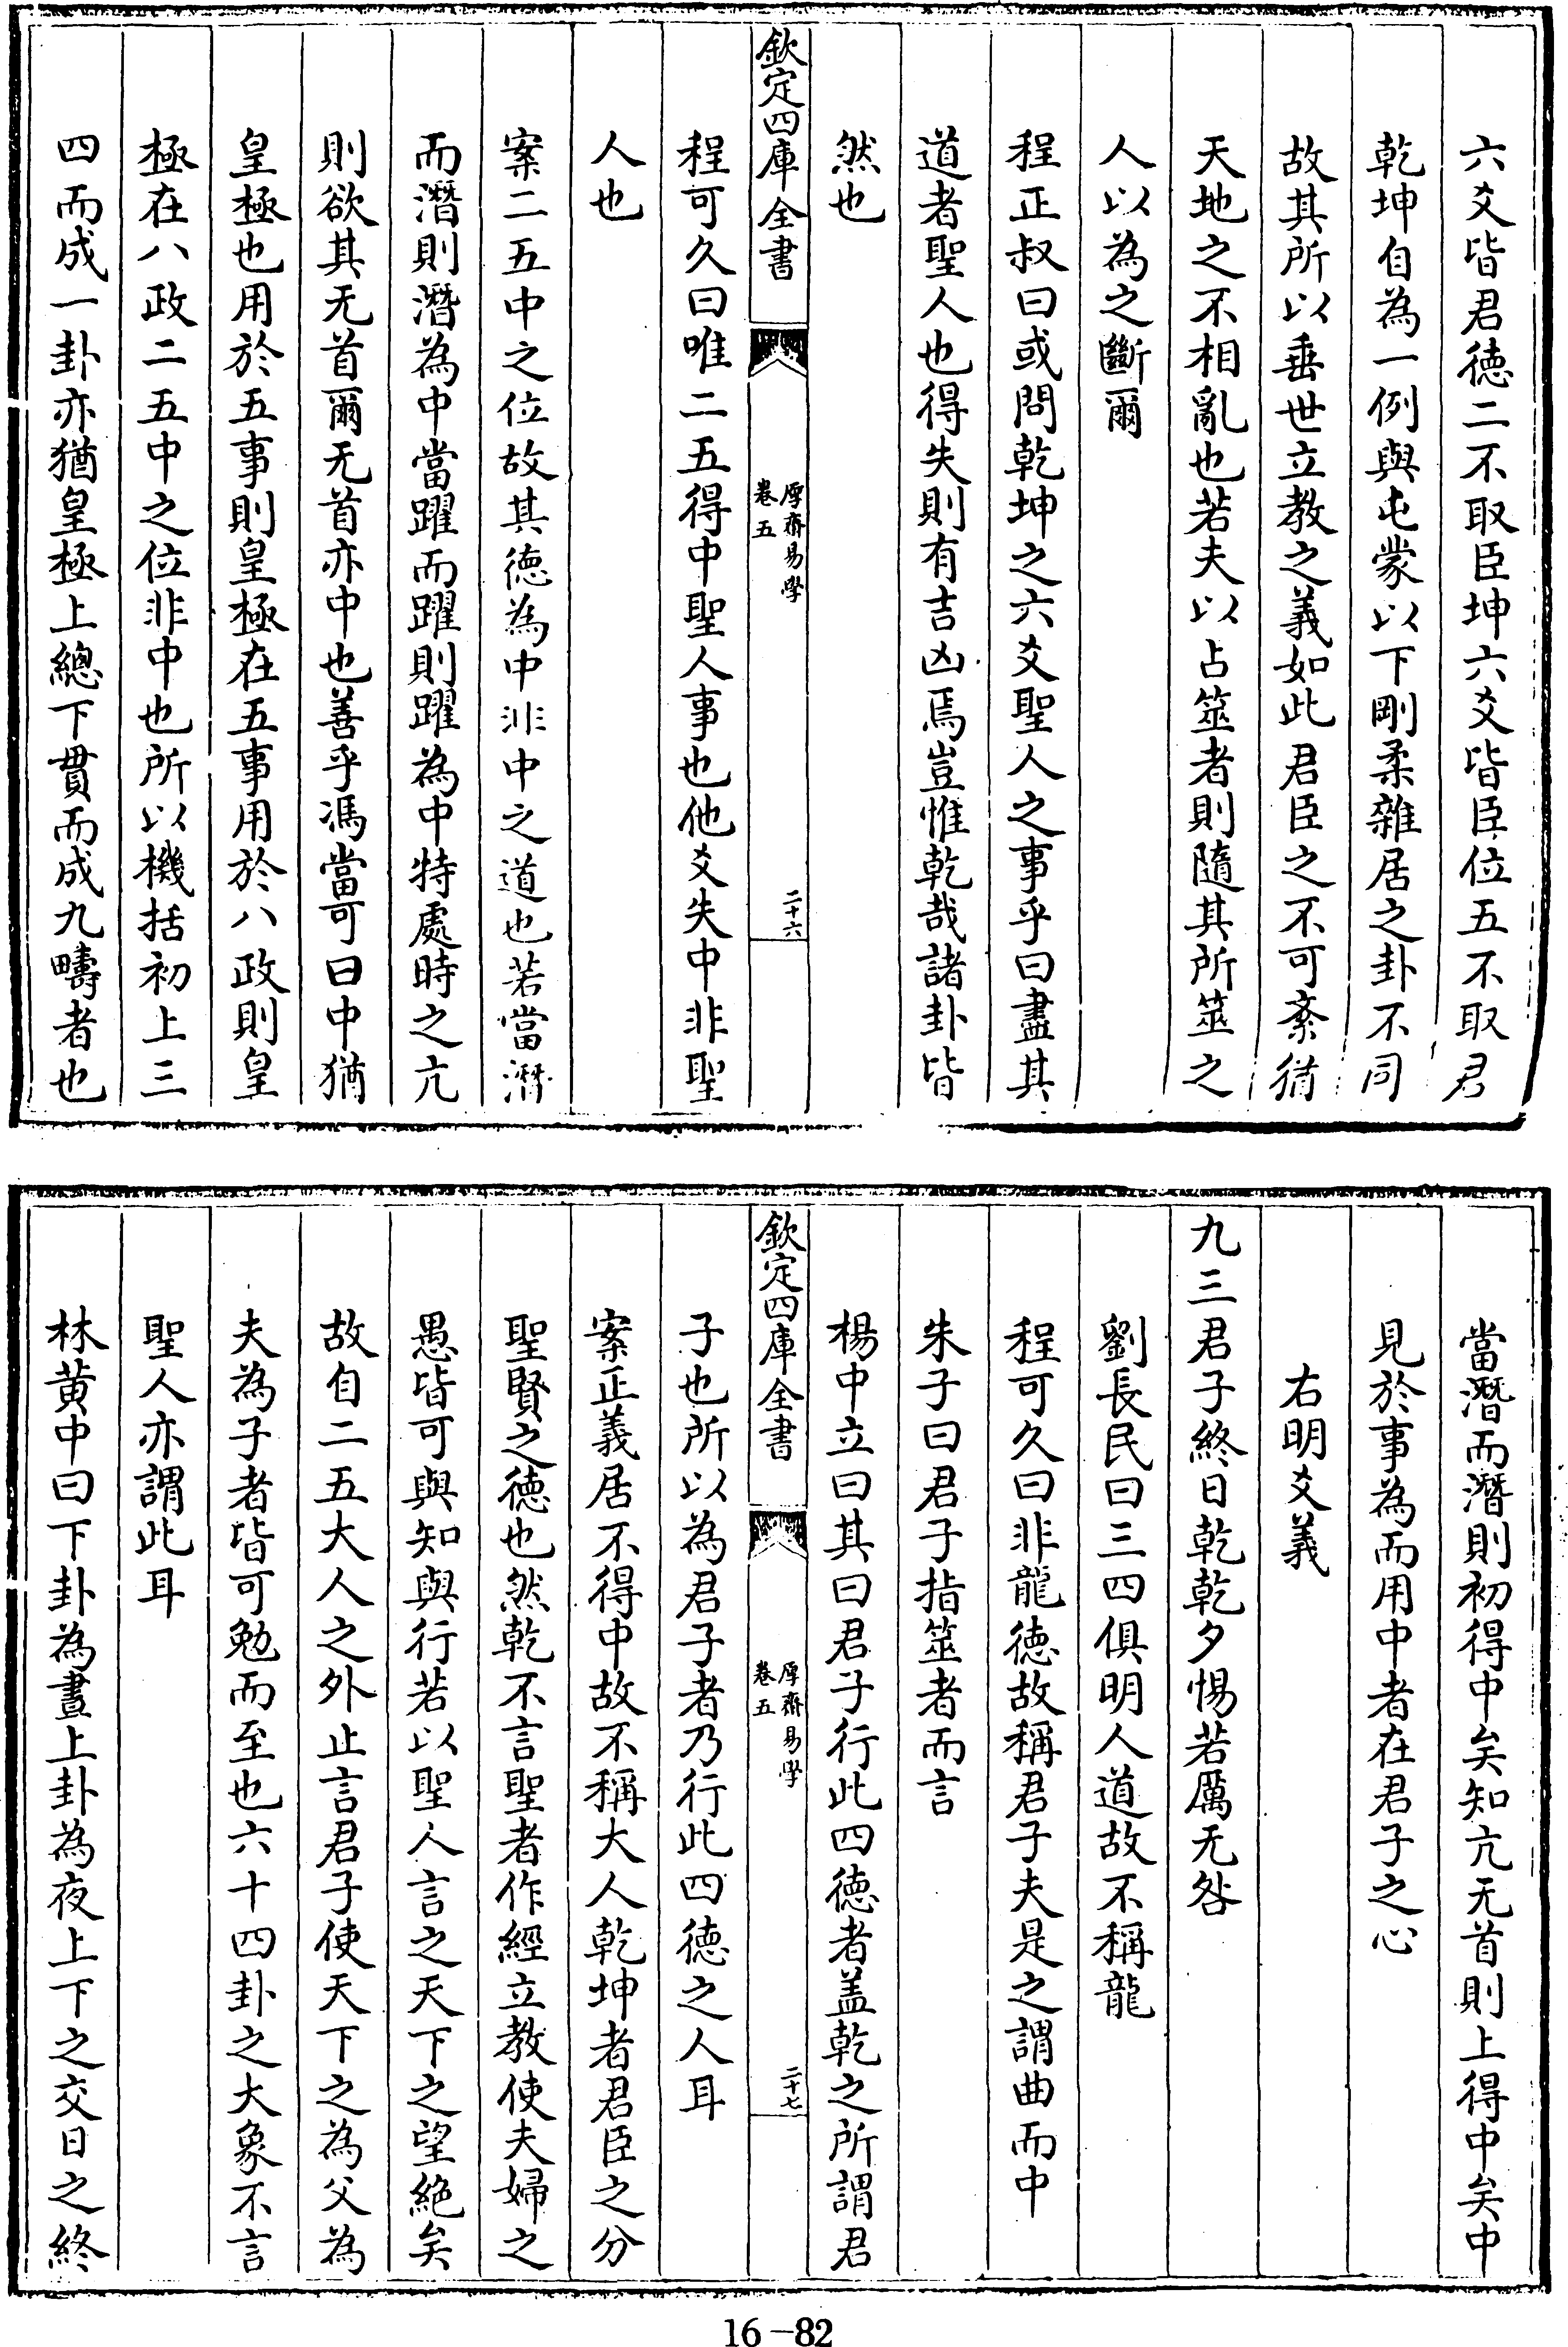 六爻皆君徳二不取臣坤六爻皆臣位五不取君
乾坤自為一例與屯蒙以下剛柔雜居之卦不同
故其所以垂世立教之義如此君臣之不可紊猶
天地之不相亂也若夫以占筮者則隨其所筮之
人以為之斷爾
程正叔曰或問乾坤之六爻聖人之事乎曰盡其
道者聖人也得失則有吉凶焉豈惟乾哉諸卦皆
然也
欽定四庫全書
厚齋易學
卷五
二十六
程可久曰唯二五得中聖人事也他爻失中非聖
人也
案二五中之位故其徳為中非中之道也若當潛
而潛則潛為中當躍而躍則躍為中特處時之亢
則欲其无首爾无首亦中也善乎馮當可曰中猶
皇極也用於五事則皇極在五事用於八政則皇
極在八政二五中之位非中也所以機括初上三
四而成一卦亦猶皇極上總下貫而成九疇者也
當潛而潛則初得中矣知亢无首則上得中矣中
見於事為而用中者在君子之心
右明爻義
九三君子終日乾乾夕惕若厲无咎
劉長民曰三四俱明人道故不稱龍
程可久曰非龍徳故稱君子夫是之謂曲而中
朱子曰君子指筮者而言
楊中立曰其曰君子行此四徳者盖乾之所謂君
欽定四庫全書
厚齋易學
卷五
二十七
子也所以為君子者乃行此四徳之人耳
案正義居不得中故不稱大人乾坤者君臣之分
聖賢之徳也然乾不言聖者作經立教使夫婦之
愚皆可與知與行若以聖人言之天下之望絶矣
故自二五大人之外止言君子使天下之為父為
夫為子者皆可勉而至也六十四卦之大象不言
聖人亦謂此耳
林黄中曰下卦為晝上卦為夜上下之交日之終
16-82